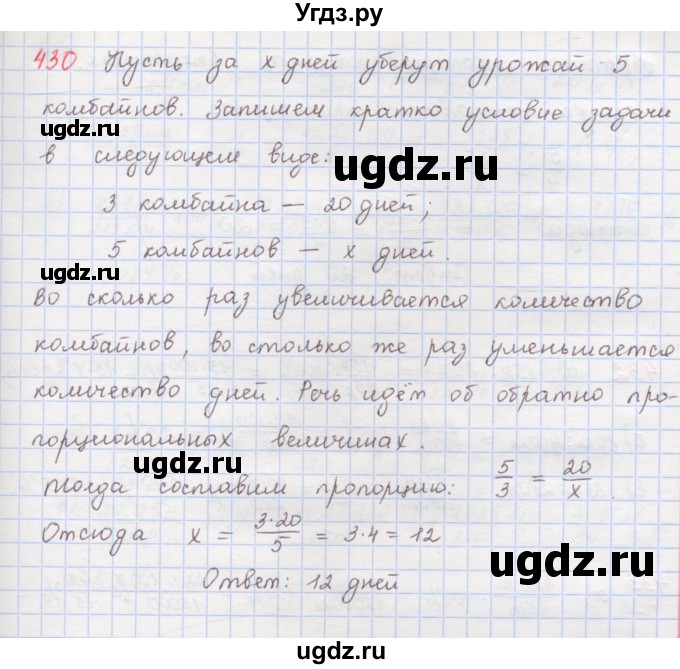 Угдз.ру
430 Пусть за x дней уберут урожай 5
комбайнов. Запишем кратко условие задачи
ugdz.ru
в следующем виде:
ugdz.ru
3 комбайна — 20 дней;
5 комбайнов — x дней.
ugdz.ru
Во сколько раз увеличивается количество
комбайнов, во столько же раз уменьшается
количество дней. Речь идёт об обратно про-
порциональных величинах.
ugdz.ru
Тогда составим пропорцию: 5/3 = 20/x.
Отсюда x = 3·20/5 = 3·4 = 12
ugdz.ru
Ответ: 12 дней
ugdz.ru